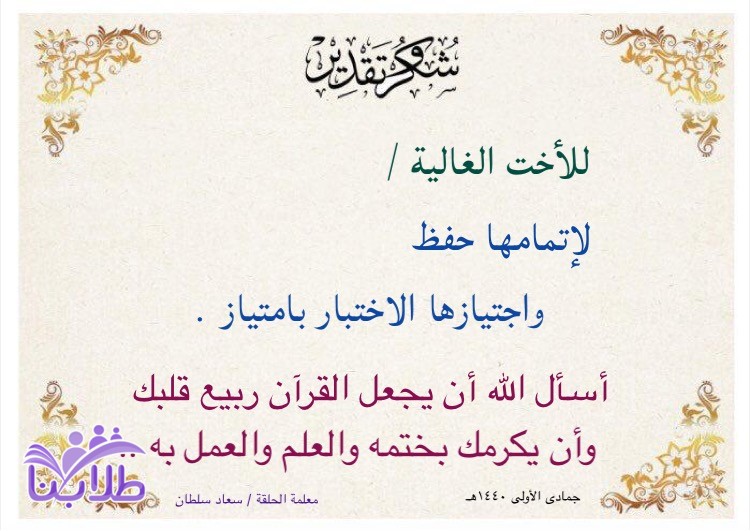 شكر وتقدير
للأخت الغالية /
لإتمامها حفظ
واجتيازها الاختبار بامتياز .
أسأل الله أن يجعل القرآن ربيع قلبك
وأن يكرمك بختمه والعلم والعمل به ..
جمادى الأولى ١٤٤٠هـ
معلمة الحلقة / سعاد سلطان
طلابنا